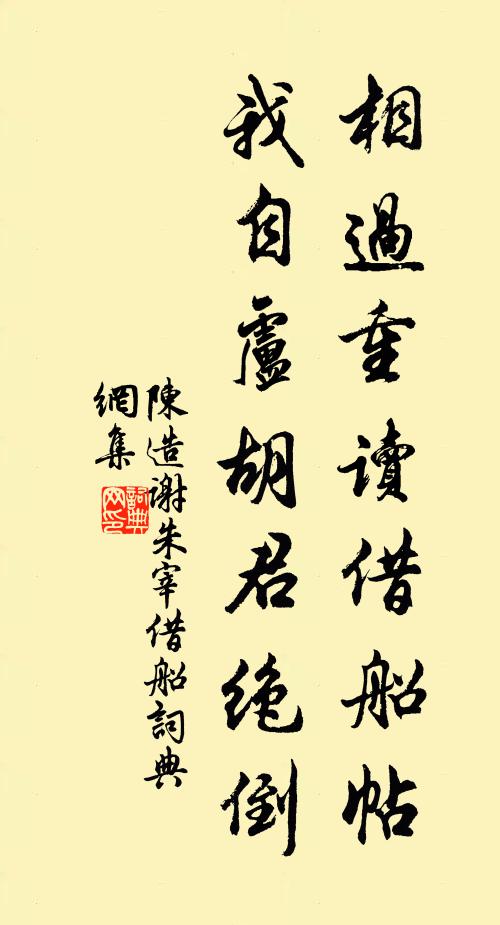 相過重讀借船帖
我自盧胡君絶倒
陳造謝朱宰借船詞典
網集
詞典
网印